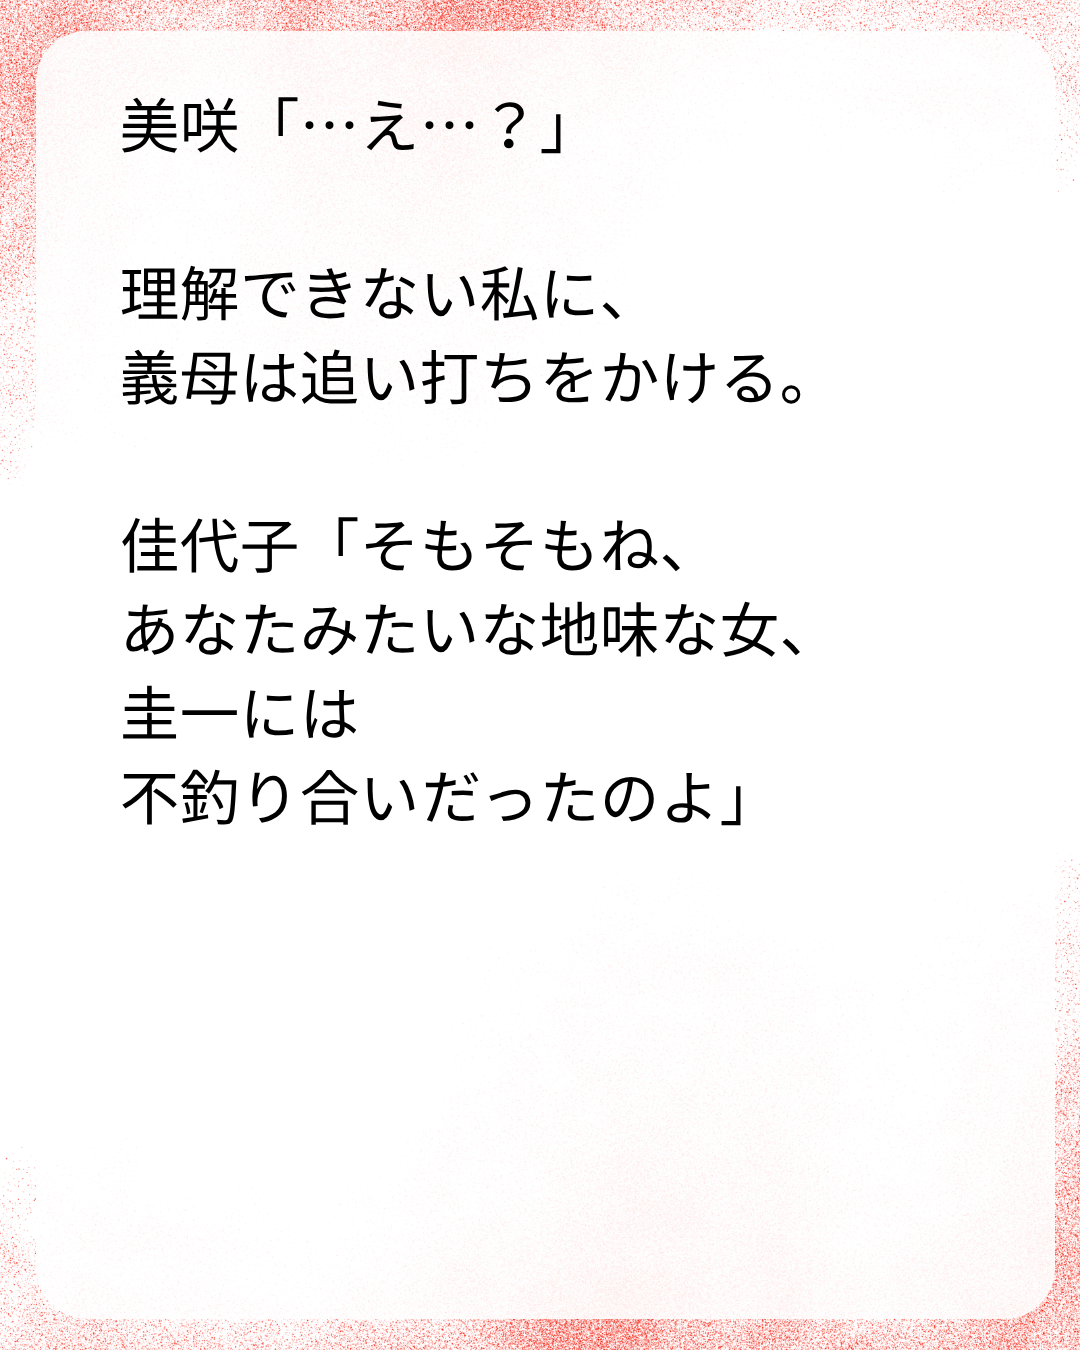 美咲「…え…？」
理解できない私に、
義母は追い打ちをかける。
佳代子「そもそもね、
あなたみたいな地味な女、
圭一には
不釣り合いだったのよ」